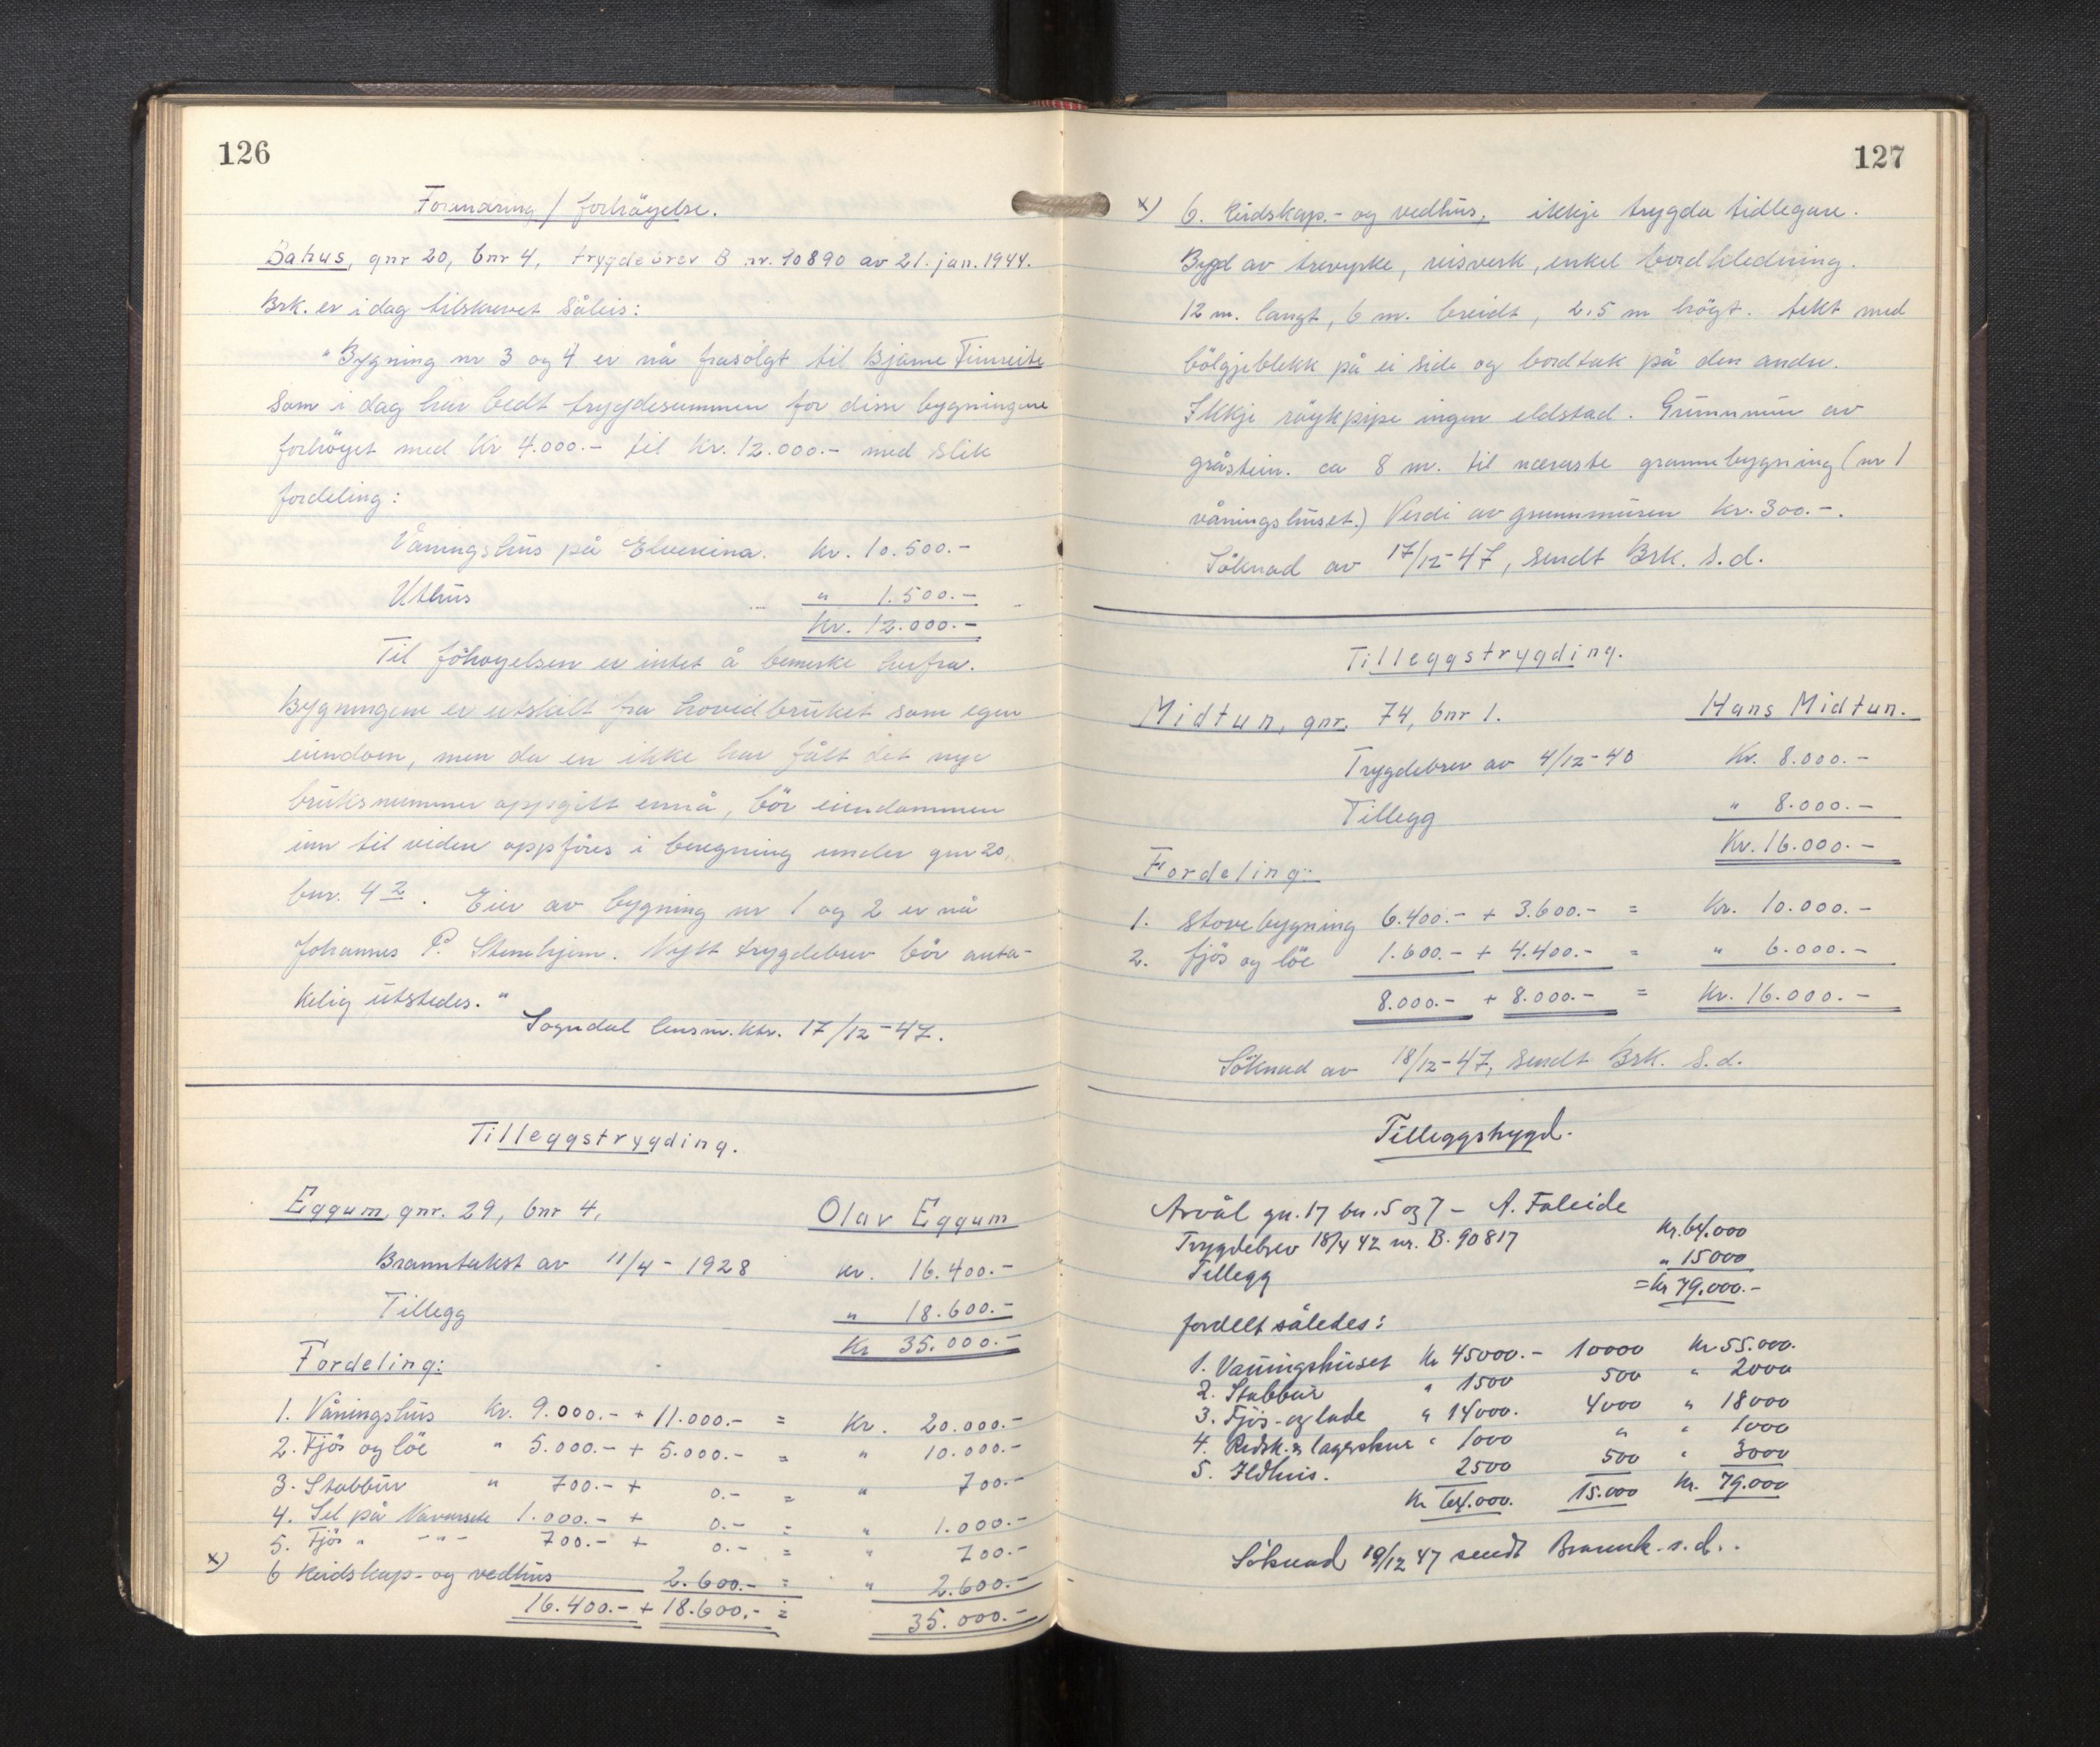 126
Forandring / forhögelse.
Bahus, gnr 20, bnr 4, trygdebrev B nr. 10890 av 21. jan. 1944.
Brk. er i dag tilskrevet såleis:
"Bygning nr 3 og 4 er nå frasolgt til Bjarne Timreite
som i dag har bedt trygdesummen for disse bygningene
forhöyet med Kr 4.000.- til Kr. 12.000.- med slik
fordeling:
Våningshus på Kr. 10.500.-
Uthus " 1.500.-
Kr. 12.000.-
Til föhoyelsen er intet å bemerke herfra.
Bygningene er utskilt fra hovedbruket som egen
eiendom, men da en ikke har fått det nye
bruksnummer oppgitt ennå, bör eiendommen
inn til videre oppföres i beregning under gnr 20,
bnr. 4 2. Eier av bygning nr 1 og 2 er nå
Johannes P. Stenehjem. Nytt trygdebrev bör anta-
kelig utstedes."
Sogndal lensm.ktr. 17/12-47.
Tilleggstrygding.
Eggum, gnr. 29, bnr 4, Olav Eggum
Branntakst av 11/4 - 1928 kr. 16.400.-
Tillegg " 18.600.-
Kr 35.000.-
Fordeling:
1. Våningshus Kr. 9.000.- + 11.000.- = Kr. 20.000.-
2. Fjös og löe " 5.000.- + 5.000.- = " 10.000.-
3. Stabbur " 700.- + 0.- = " 700.-
4. Sel på 1.000.- + 0.- = " 1.000.-
5. Fjös " -"- 700.- + 0.- = " 700.-
x) 6 Reidskap- og vedhus 2.600.- = " 2.600.-
16.400.- + 18.600.- = 35.000.-
127
x) 6. Reidskap- og vedhus, ikkje trygda tidlegare.
Bygd av trevyrke, reisverk, enkel bordkledning.
12 m. langt, 6 m. breidt, 2.5 m högt. tekt med
bölgjeblekk på ei side og bordtak på den andre.
Ikkje röykpipe ingen eldstad. Grunnmur av
gråstein. ca 8 m. til næraste grannebygning (nr 1
våningshuset.) Verdi av grunnmuren Kr. 300.-.
Söknad av 17/12-47, sendt Brk. s.d.
Tilleggstrygding.
Midtun, gnr. 74, bnr 1. Hans Midtun.
Trygdebrev av 4/12-40 Kr. 8.000.-
Tillegg " 8.000.-
Kr. 16.000.-
Fordeling:
1. Stovebygning 6.400.- + 3.600.- = Kr. 10.000.-
2. fjös og löe 1.600.- + 4.400.- = " 6.000.-
8.000.- + 8.000.- = Kr. 16.000.-
Söknad av 18/12-47, sendt Brk. s.d.
Tilleggstrygd.
Arvål gn. 17 bn. 5 og 7 - A. Faleide
Trygdebrev 18/4 42 nr. B. 90817 Kr. 64.000
Tillegg " 15000
= Kr 79.000.-
fordelt således:
1. Vaningshuset Kr 45000.- 10000 Kr 55.000.
2. Stabbur " 1500 500 " 2000
3. Fjös- og lade " 14000. 4000 " 18000
4. Redsk. & lagerskur " 1000 " " 1000
5. Ildhus. 2500 500 " 3000
Kr 64.000. 15.000 Kr. 79.000
Söknad 19/12 47 sendt Brannk. s.d..